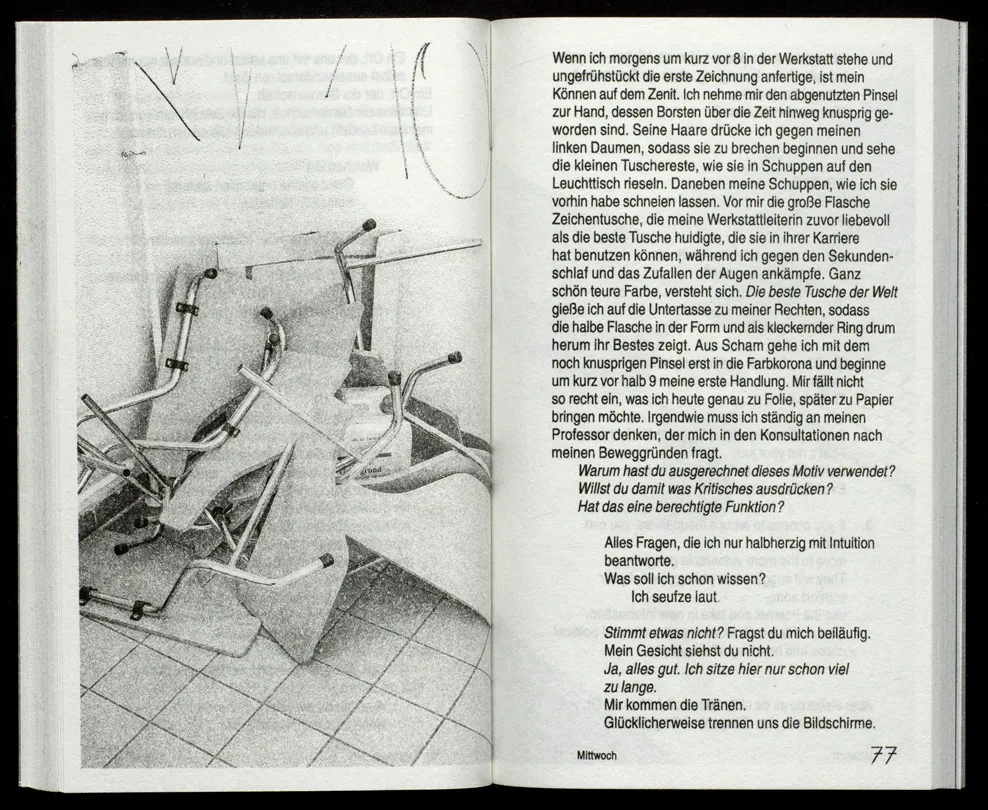 Wenn ich morgens um kurz vor 8 in der Werkstatt stehe und
ungefrühstückt die erste Zeichnung anfertige, ist mein
Können auf dem Zenit. Ich nehme mir den abgenutzten Pinsel
zur Hand, dessen Borsten über die Zeit hinweg knusprig ge-
worden sind. Seine Haare drücke ich gegen meinen
linken Daumen, sodass sie zu brechen beginnen und sehe
die kleinen Tuschereste, wie sie in Schuppen auf den
Leuchttisch rieseln. Daneben meine Schuppen, wie ich sie
vorhin habe schneien lassen. Vor mir die große Flasche
Zeichentusche, die meine Werkstattleiterin zuvor liebevoll
als die beste Tusche huidigte, die sie in ihrer Karriere
hat benutzen können, während ich gegen den Sekunden-
schlaf und das Zufallen der Augen ankämpfe. Ganz
schön teure Farbe, versteht sich. Die beste Tusche der Welt
gieße ich auf die Untertasse zu meiner Rechten, sodass
die halbe Flasche in der Form und als kleckernder Ring drum
herum ihr Bestes zeigt. Aus Scham gehe ich mit dem
noch knusprigen Pinsel erst in die Farbkorona und beginne
um kurz vor halb 9 meine erste Handlung. Mir fällt nicht
so recht ein, was ich heute genau zu Folie, später zu Papier
bringen möchte. Irgendwie muss ich ständig an meinen
Professor denken, der mich in den Konsultationen nach
meinen Beweggründen fragt.
Warum hast du ausgerechnet dieses Motiv verwendet?
Willst du damit was Kritisches ausdrücken?
Hat das eine berechtigte Funktion?
Alles Fragen, die ich nur halbherzig mit Intuition
beantworte.
Was soll ich schon wissen?
Ich seufze laut.
Stimmt etwas nicht? Fragst du mich beiläufig.
Mein Gesicht siehst du nicht.
Ja, alles gut. Ich sitze hier nur schon viel
zu lange.
Mir kommen die Tränen.
Glücklicherweise trennen uns die Bildschirme.
Mittwoch
77